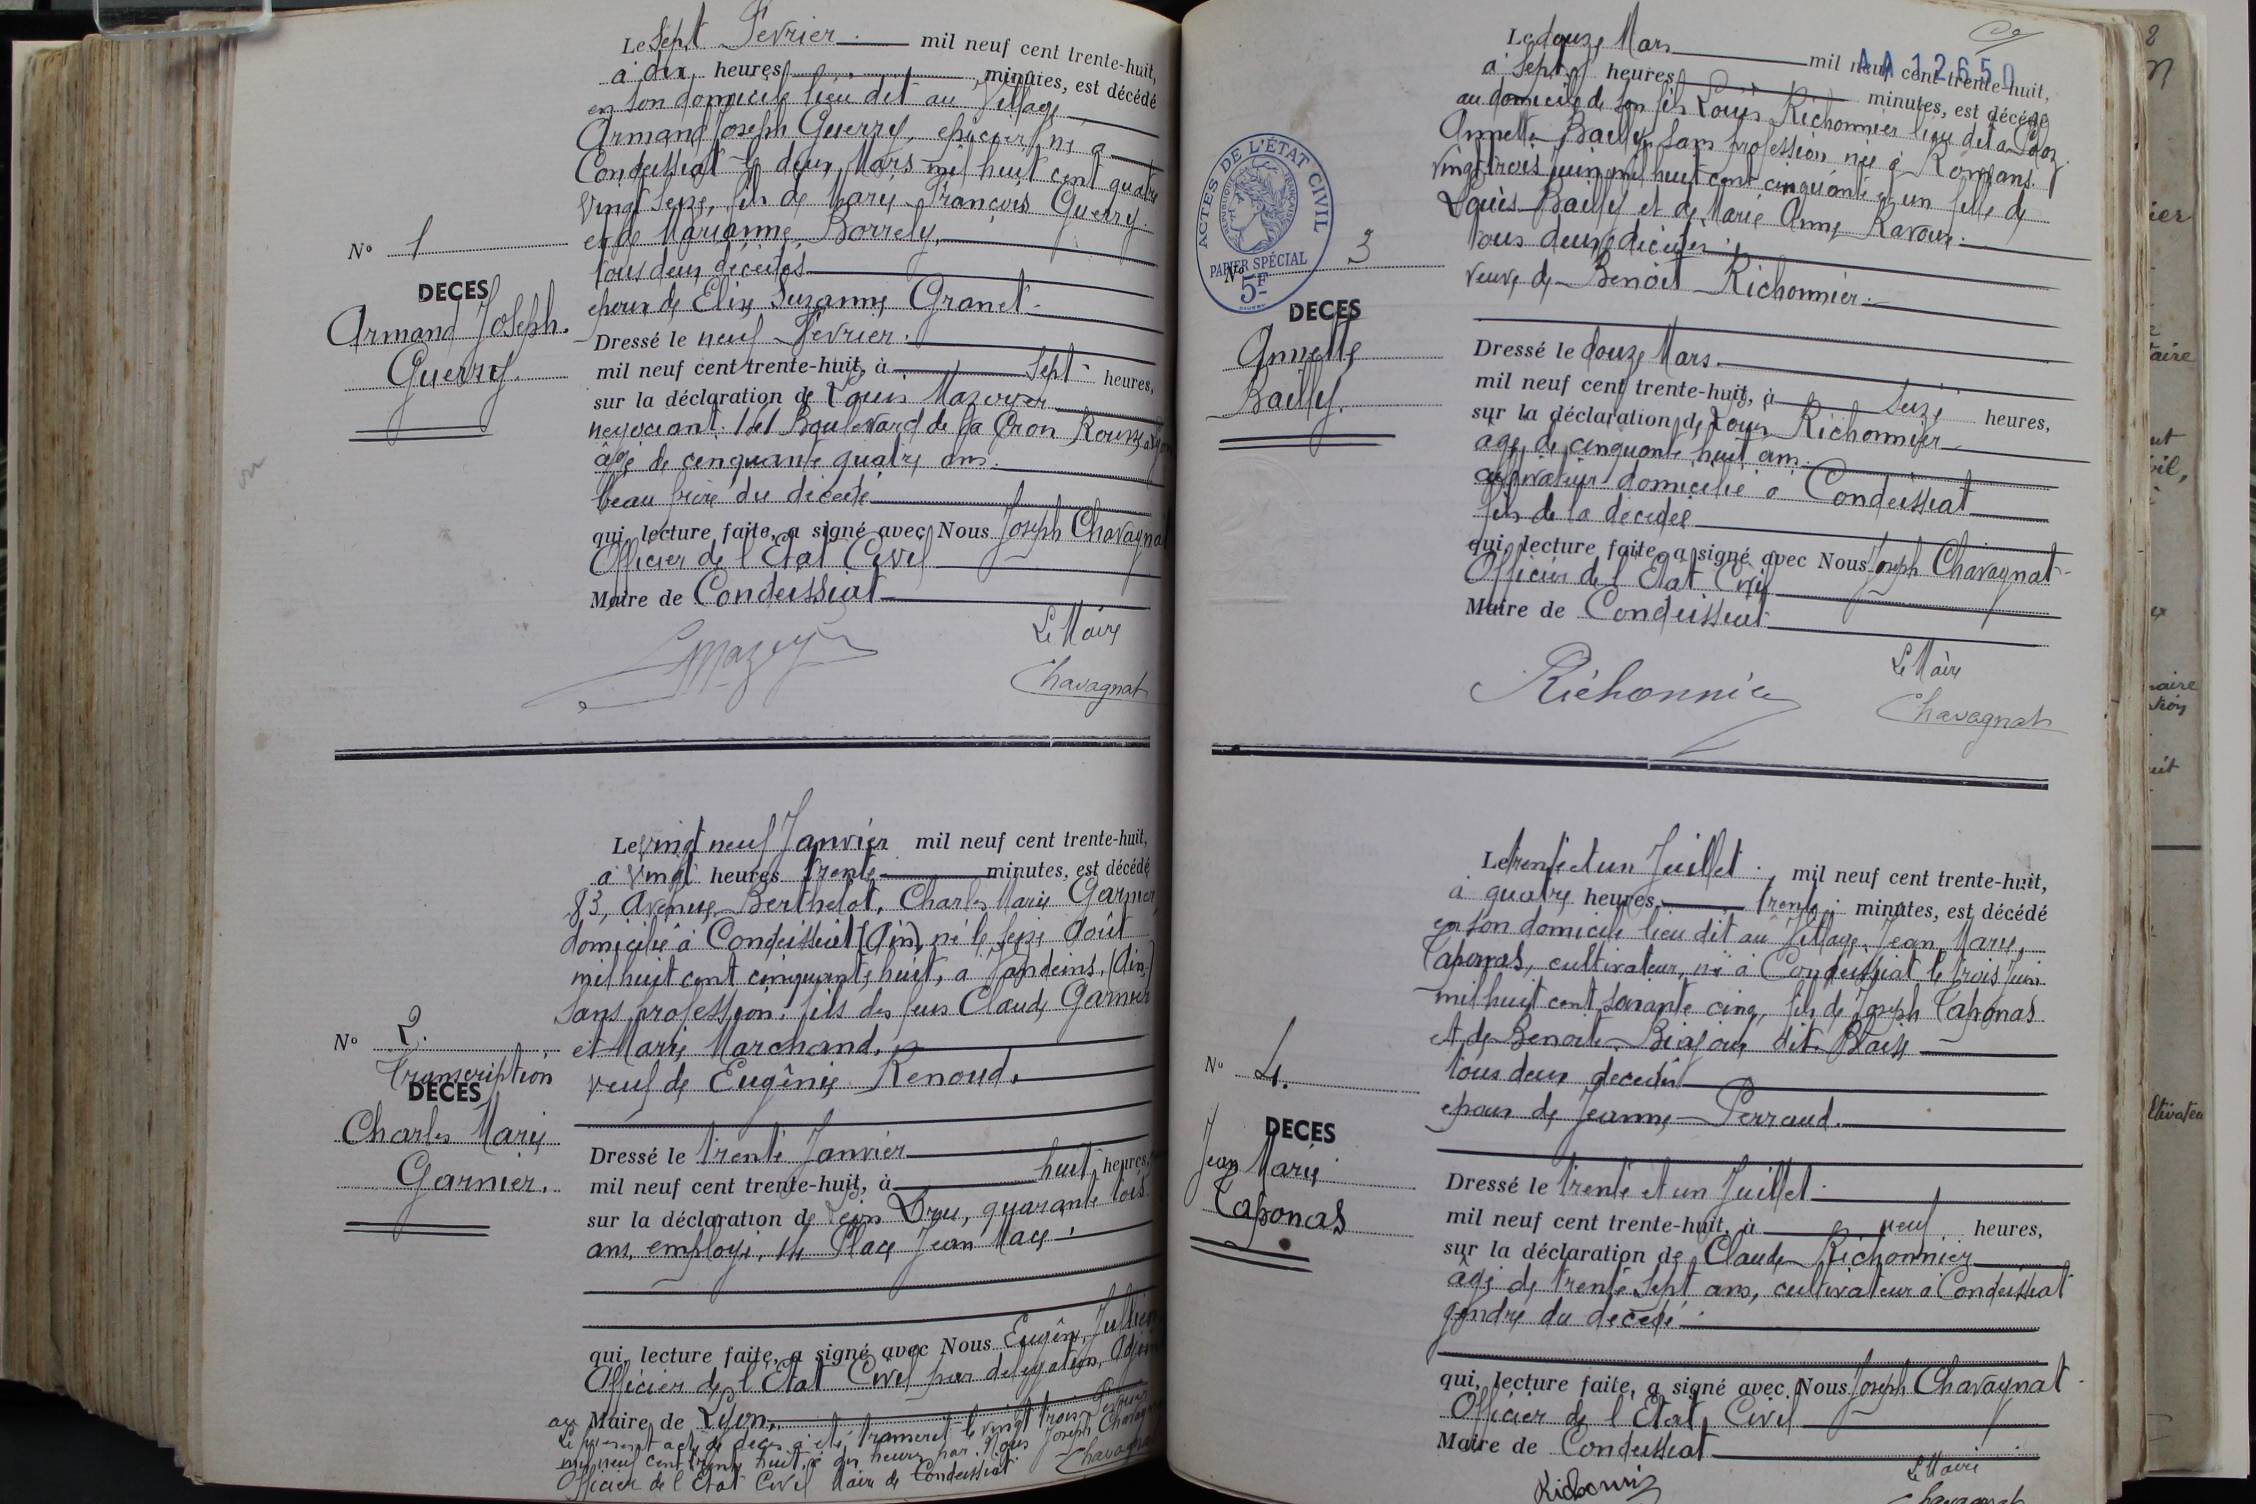 N° 1
DECES
Armand Joseph
Guerry.
Le sept Fevrier mil neuf cent trente-huit,
à dix heures minutes, est décédé
en son domicile lieu dit au Village
Armand Joseph Guerry, épicier, né à
Condeissiat le deux Mars mil huit cent quatre
vingt seize, fils de Marie François Guerry
et de Marianne Borrely,
tous deux décédés
epoux de Elise Suzanne Granet
Dressé le neuf Fevrier.
mil neuf cent trente-huit, à sept heures,
sur la déclaration de Louis Mazoyer
negociant. 161 Boulevard de la Croix Rousse à Lyon
âgé de cinquante quatre ans.
beau frère du décédé
qui, lecture faite, a signé avec Nous Joseph Chavagnat
Officier de l'Etat Civil
Maire de Condeissiat
Le Maire
Chavagnat
N° 2.
Transcription
DECES
Charles Marie
Garnier.
Le vingt neuf Janvier mil neuf cent trente-huit,
à vingt heures trente minutes, est décédé
83, Avenue Berthelot, Charles Marie Garnier
domicilié à Condeissiat (Ain), né le seize Août
mil huit cent cinquante huit, à Vandeins, (Ain)
sans profession, fils des feus Claude Garnier
et Marie Marchand.
veuf de Eugénie Renoud.
Dressé le trente Janvier
mil neuf cent trente-huit, à huit heures,
sur la déclaration de Léon Dru, quarante trois
ans, employé, 14 Place Jean Macé
qui, lecture faite, a signé avec Nous Eugène Jullien
Officier de l'Etat Civil par délégation, Adjoint
au Maire de Lyon.
Le présent acte de décès a été transcrit le vingt trois Fevrier
mil neuf cent trente huit à dix heures par Nous Joseph Chavagnat
Officier de l'Etat Civil Maire de Condeissiat.
Chavagnat
AA 12650
ACTES DE L'ÉTAT CIVIL
RÉPUBLIQUE FRANÇAISE
PAPIER SPÉCIAL
5F
N° 3
DECES
Annette
Bailly.
Le douze Mars mil neuf cent trente-huit,
à sept heures minutes, est décédée
au domicile de son fils Louis Richonnier lieu dit à
Annette Bailly, sans profession née à Romans.
vingt trois juin mil huit cent cinquante et un fille de
Louis Bailly et de Marie Anne Ravoux.
tous deux décédés.
veuve de Benoit Richonnier.
Dressé le douze Mars
mil neuf cent trente-huit, à seize heures,
sur la déclaration de Louis Richonnier
âgé de cinquante huit ans.
cultivateur domicilié à Condeissiat
fils de la décédée
qui, lecture faite, a signé avec Nous Joseph Chavagnat
Officier de l'Etat Civil
Maire de Condeissiat
Le Maire
Richonnier
Chavagnat
N° 4.
DECES
Jean Marie
Taponas
Le trente et un Juillet mil neuf cent trente-huit,
à quatre heures trente minutes, est décédé
en son domicile lieu dit au Village, Jean Marie,
Taponas, cultivateur, né à Condeissiat le trois Juin
mil huit cent soixante cinq, fils de Joseph Taponas
et de Benoite Biajoux dit Blais
tous deux décédés
epoux de Jeanne Perraud.
Dressé le trente et un Juillet
mil neuf cent trente-huit, à neuf heures,
sur la déclaration de Claude Richonnier
âgé de trente sept ans, cultivateur à Condeissiat
gendre du décédé
qui, lecture faite, a signé avec Nous Joseph Chavagnat
Officier de l'Etat Civil
Maire de Condeissiat
Le Maire
Richonnier
Chavagnat